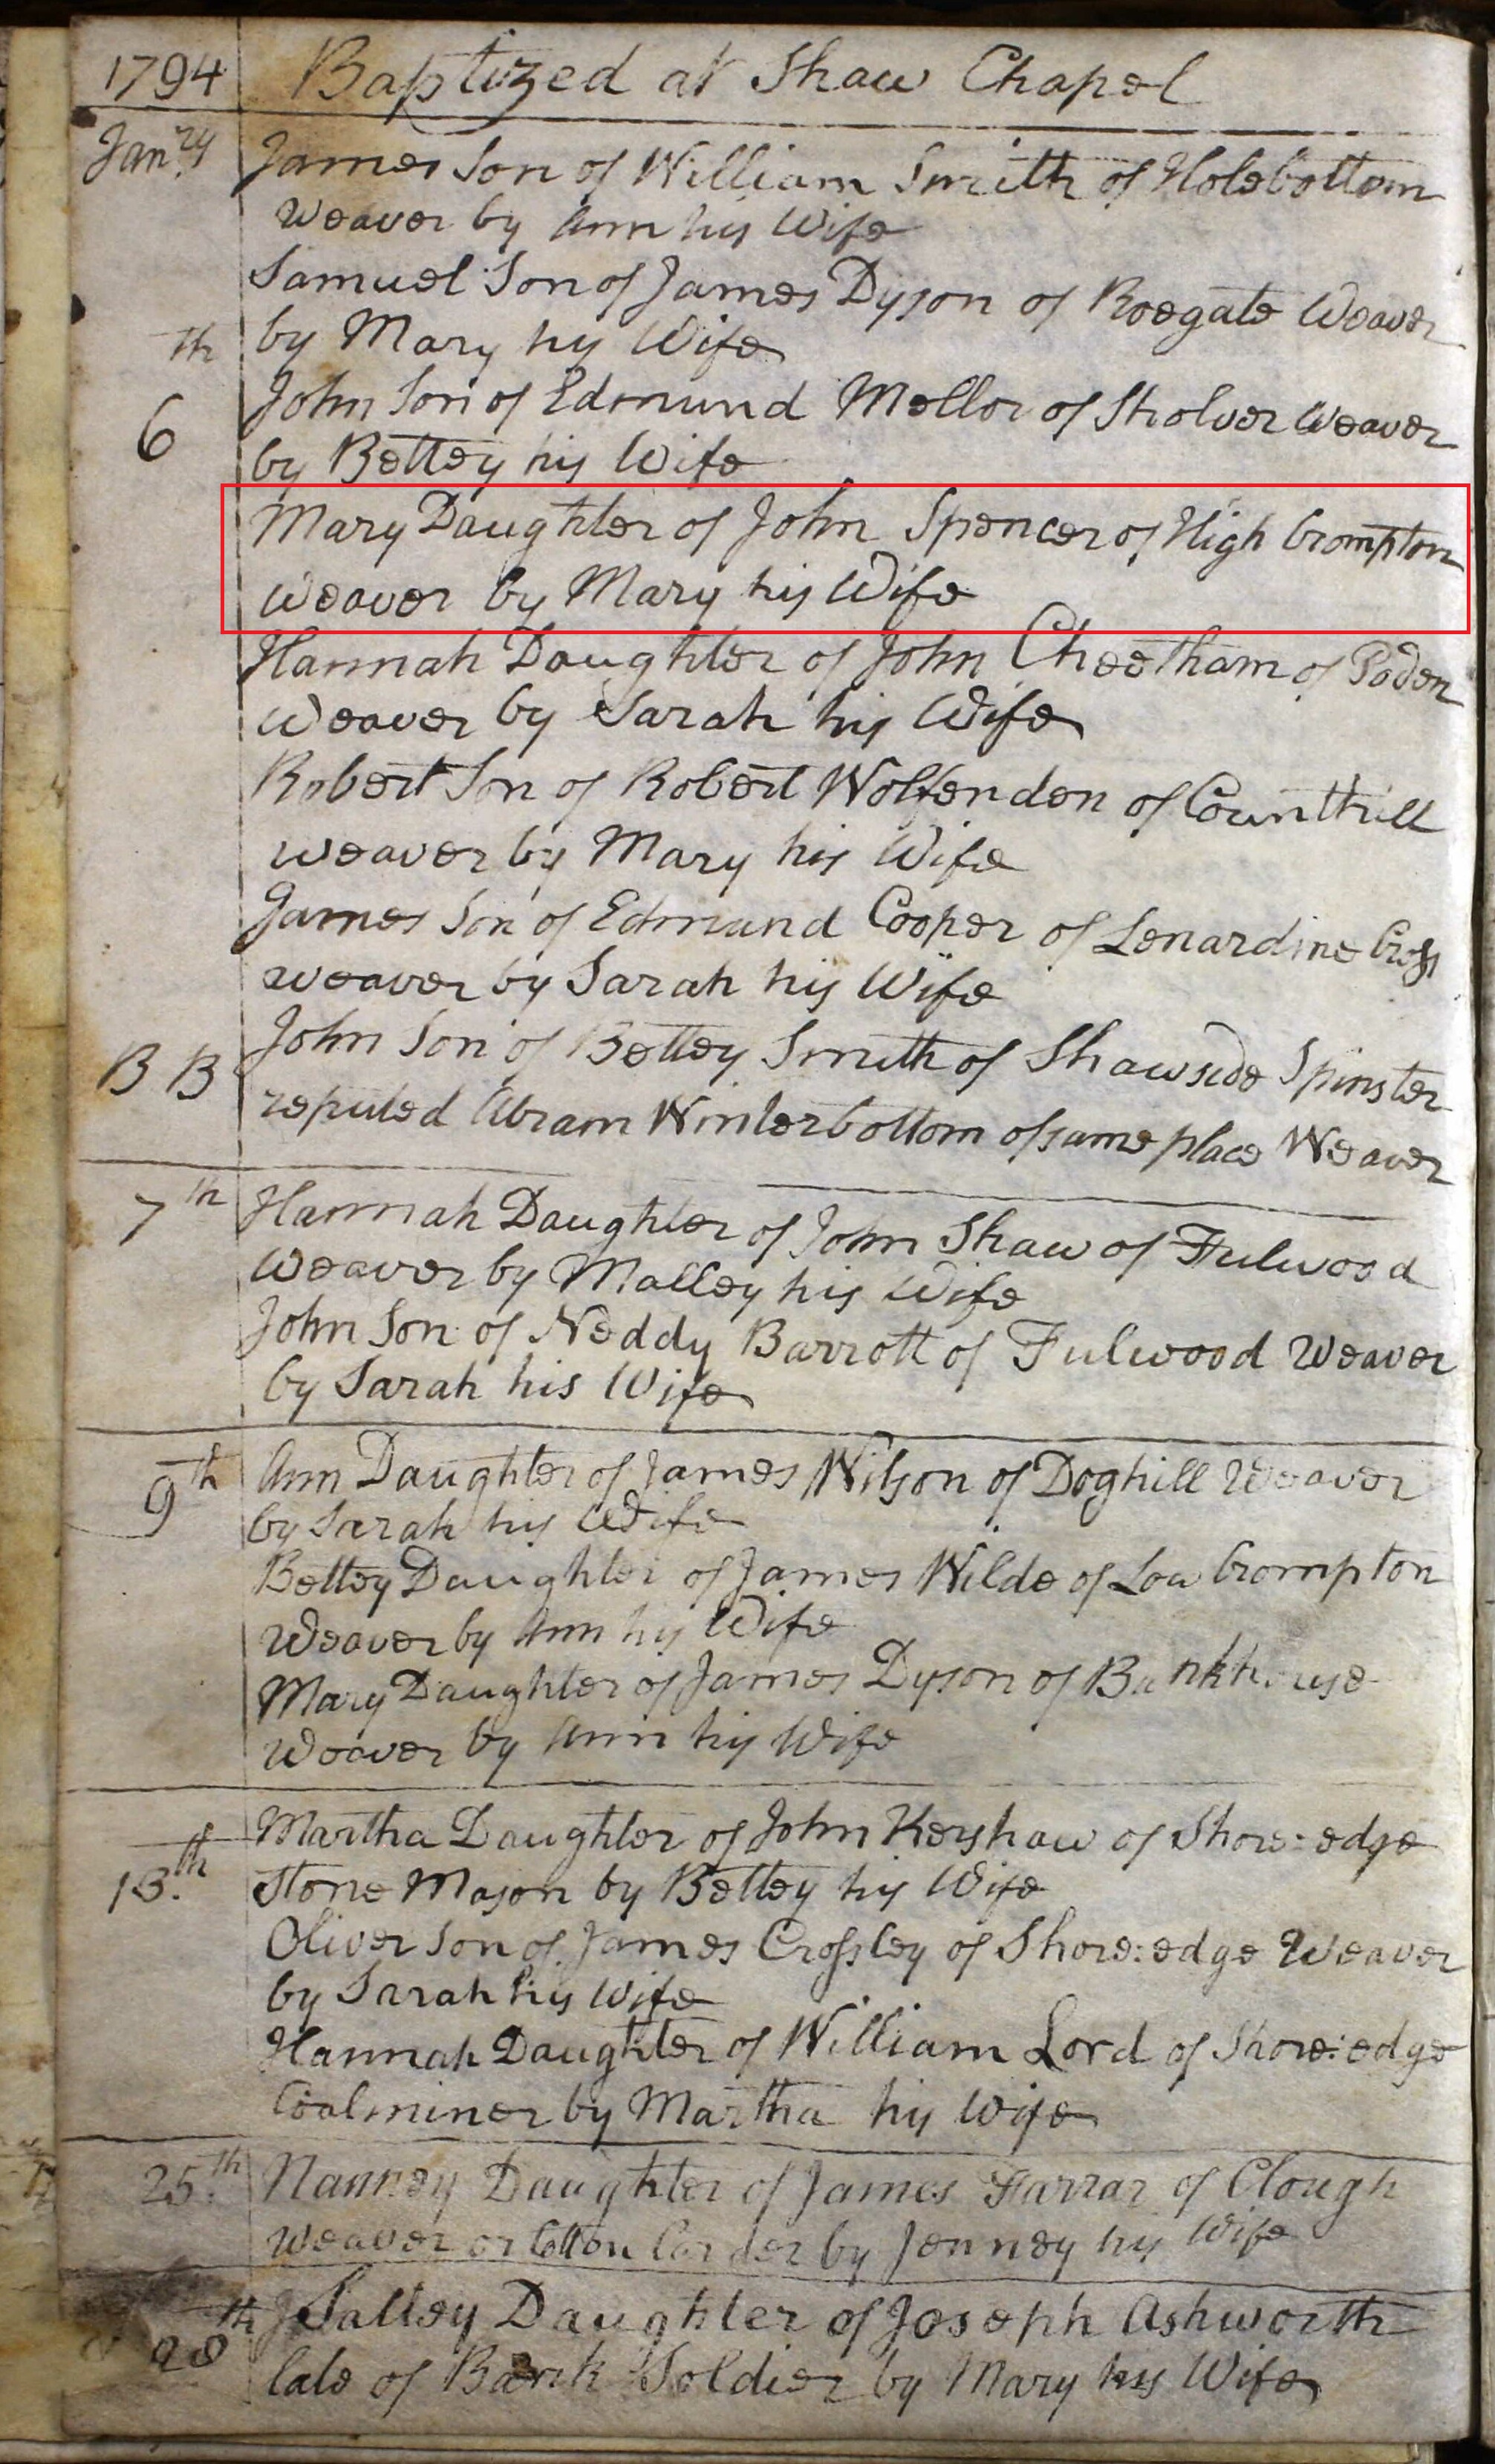 1794 Baptized at Shaw Chapel
Janry James Son of William Smith of Holebottom
Weaver by Ann his Wife
Samuel Son of James Dyson of Roegate Weaver
th by Mary his Wife
6 John Son of Edmund Mellor of Sholver Weaver
by Bettey his Wife
Mary Daughter of John Spencer of High Crompton
Weaver by Mary his Wife
Hannah Daughter of John Cheetham of Poden
Weaver by Sarah his Wife
Robert Son of Robert Wolfenden of Counthill
Weaver by Mary his Wife
James Son of Edmund Cooper of Lenardine Cross
Weaver by Sarah his Wife
John Son of Bettey Smith of Shawside Spinster
B B reputed Abram Winterbottom of same place Weaver
7th Hannah Daughter of John Shaw of Fulwood
Weaver by Malley his Wife
John Son of Neddy Barrott of Fulwood Weaver
by Sarah his Wife
9th Ann Daughter of James Wilson of Doghill Weaver
by Sarah his Wife
Bettey Daughter of James Wilde of Low Crompton
Weaver by Ann his Wife
Mary Daughter of James Dyson of Bankhouse
Weaver by Ann his Wife
Martha Daughter of John Kershaw of Shore:edge
13.th Stone Mason by Bettey his Wife
Oliver Son of James Crossley of Shore:edge Weaver
by Sarah his Wife
Hannah Daughter of William Lord of Shore:edge
Coalminer by Martha his Wife
25.th Nanney Daughter of James Farrar of Clough
Weaver or Cotton Carder by Jenney his Wife
th Salley Daughter of Joseph Ashworth
28 late of Bank Soldier by Mary his Wife